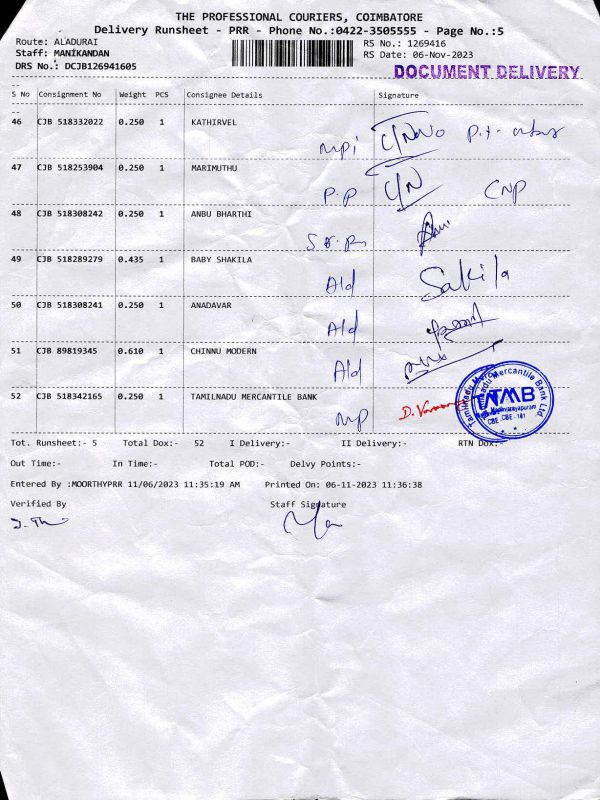 THE PROFESSIONAL COURIERS, COIMBATORE
Delivery Runsheet - PRR - Phone No.:0422-3505555 - Page No.:5
Route: ALADURAI
RS No.: 1269416
Staff: MANIKANDAN
RS Date: 06-Nov-2023
DRS No.: DCJB126941605
DOCUMENT DELIVERY
S No Consignment No Weight PCS Consignee Details Signature
46 CJB 518332022 0.250 1 KATHIRVEL
mpi
47 CJB 518253904 0.250 1 MARIMUTHU
P.P C/N CNP
48 CJB 518308242 0.250 1 ANBU BHARTHI
49 CJB 518289279 0.435 1 BABY SHAKILA
Ald Sakila
50 CJB 518308241 0.250 1 ANADAVAR
Ald
51 CJB 89819345 0.610 1 CHINNU MODERN
Ald
52 CJB 518342165 0.250 1 TAMILNADU MERCANTILE BANK
MP
Tamilnadu Mercantile Bank Ltd.
TMB
CBE - 101
Tot. Runsheet:- 5 Total Dox:- 52 I Delivery:- II Delivery:- RTN Dox:-
Out Time:- In Time:- Total POD:- Delvy Points:-
Entered By :MOORTHYPRR 11/06/2023 11:35:19 AM Printed On: 06-11-2023 11:36:38
Verified By Staff Signature